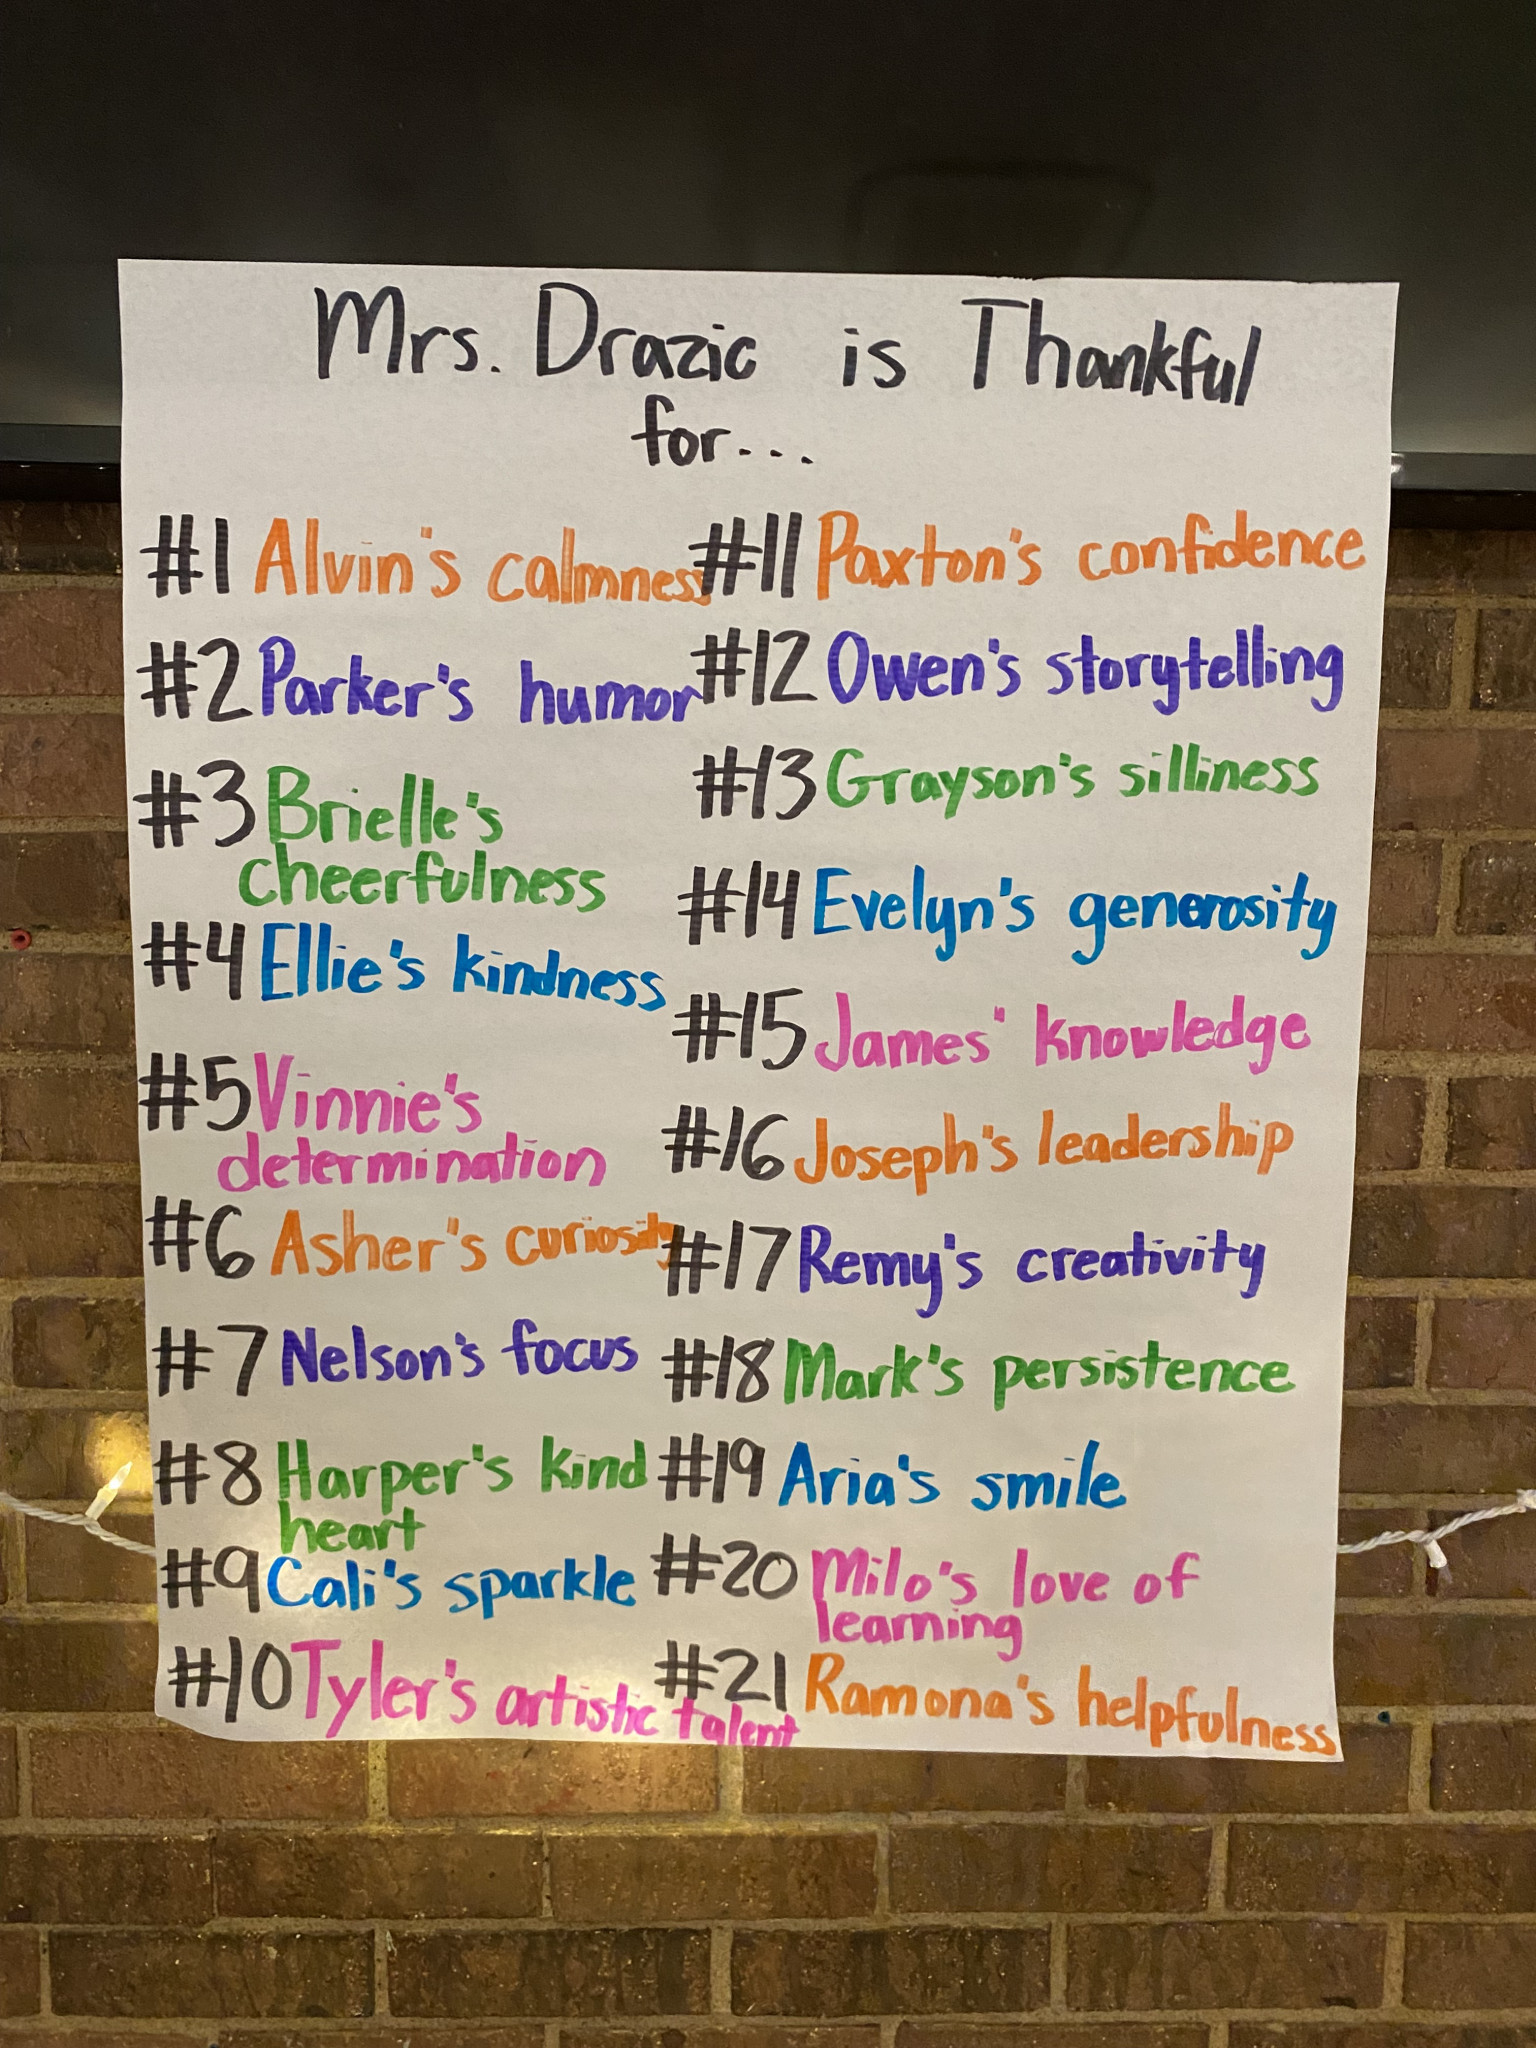 Mrs. Drazic is Thankful
for...
#1 Alvin's calmness
#2 Parker's humor
#3 Brielle's
cheerfulness
#4 Ellie's kindness
#5 Vinnie's
determination
#6 Asher's curiosity
#7 Nelson's focus
#8 Harper's kind
heart
#9 Cali's sparkle
#10 Tyler's artistic talent
#11 Paxton's confidence
#12 Owen's storytelling
#13 Grayson's silliness
#14 Evelyn's generosity
#15 James' knowledge
#16 Joseph's leadership
#17 Remy's creativity
#18 Mark's persistence
#19 Aria's smile
#20 Milo's love of
learning
#21 Ramona's helpfulness